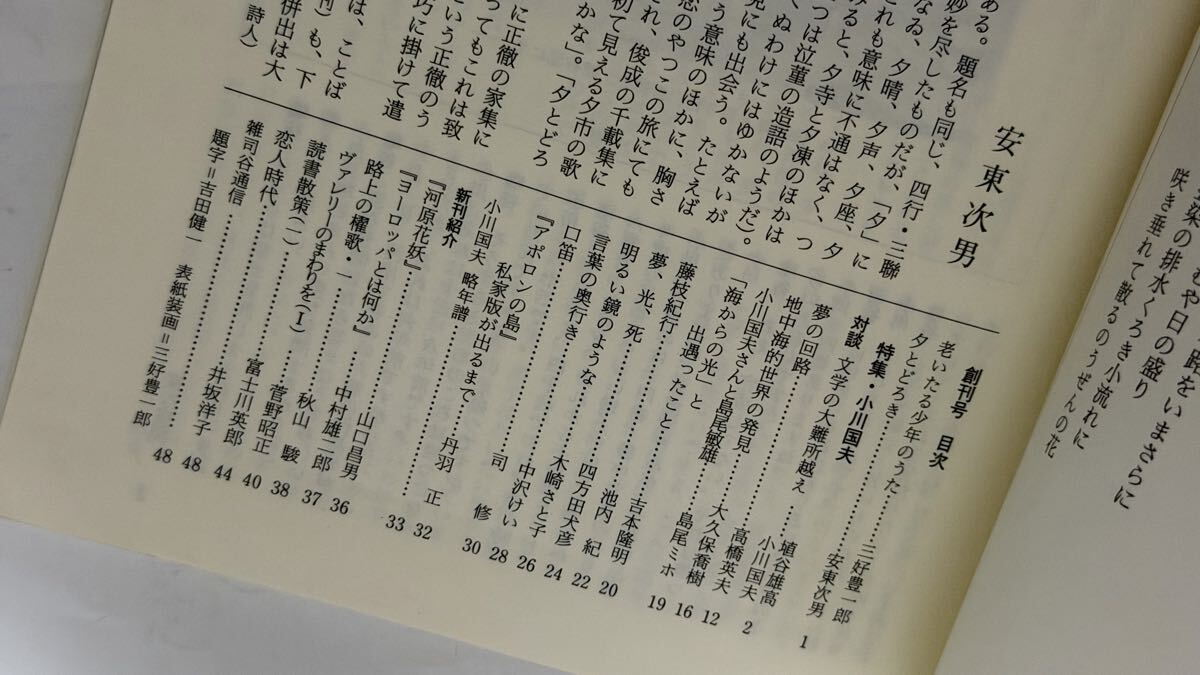 路をいまさらに
や日の盛り
築の排水くろき小流れに
咲き垂れて散るのうぜんの花
安東次男
ある。題名も同じ、四行・三聯
妙を尽したものだが、「夕」に
なゐ、夕晴、夕声、夕座、夕
これも意味に不通はなく、つ
みると、夕寺と夕凍のほかは
つは泣菫の造語のようだ)。
くぬわけにはゆかないが
見にも出会う。たとえば
う意味のほかに、胸さ
恋のやつこの旅にても
これ、俊成の千載集に
初て見える夕市の歌
かな」。「夕とどろ
に正徹の家集に
ってもこれは致
という正徹のう
巧に掛けて遣
は、ことば
刊)も、下
併出は大
詩人)
創刊号 目次
老いたる少年のうた……三好豊一郎
夕とどろき……安東次男 1
特集・小川国夫
対談 文学の大難所越え……埴谷雄高 小川国夫 2
夢の回路……高橋英夫 12
地中海的世界の発見……大久保喬樹 16
小川国夫さんと島尾敏雄……島尾ミホ 19
「海からの光」と
出遇ったこと……吉本隆明 20
藤枝紀行……池内 紀 22
夢、光、死……四方田犬彦 24
明るい鏡のような……木崎さと子 26
言葉の奥行き……中沢けい 28
口笛……司 修 30
『アポロンの島』
私家版が出るまで……丹羽 正 32
小川国夫 略年譜……33
新刊紹介
『河原花妖』……山口昌男 36
『ヨーロッパとは何か』……中村雄二郎 37
路上の櫂歌・一……秋山 駿 38
ヴァレリーのまわりを(Ⅰ)……菅野昭正 40
読書散策(一)……富士川英郎 44
恋人時代……井坂洋子 48
雑司谷通信……48
題字=吉田健一 表紙装画=三好豊一郎